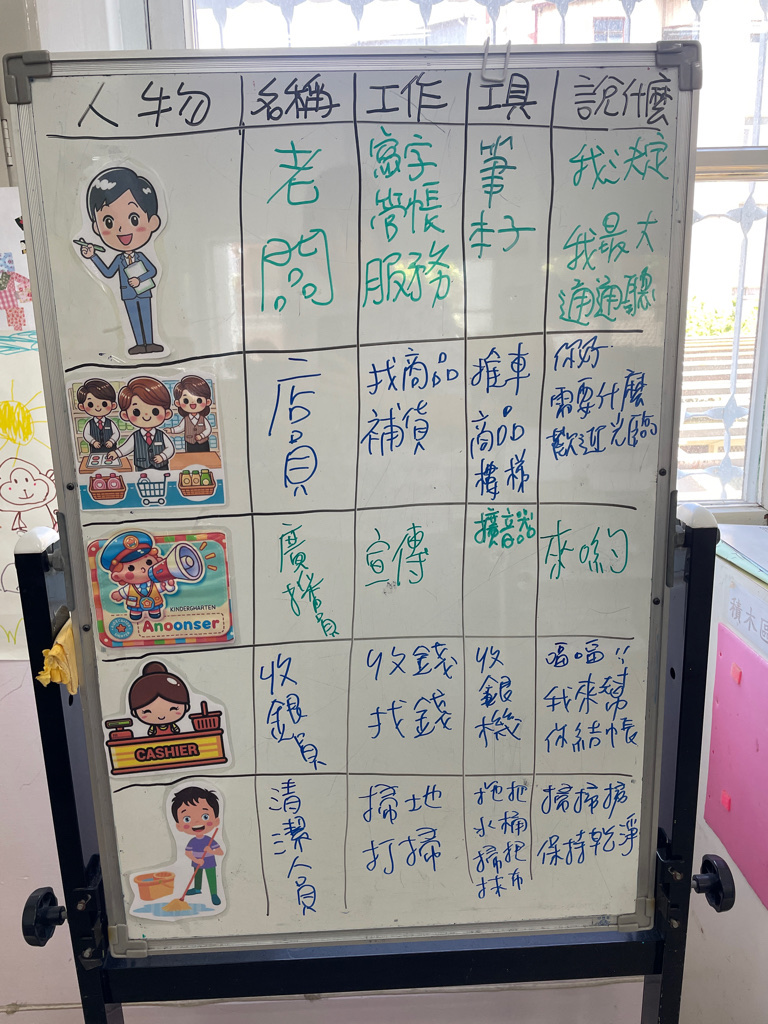 人物 名稱 工作 工具 說什麼
老
闆
寫字
管帳
服務
筆
本子
我決定
我最大
通通聽
店
員
找商品
補貨
推車
商品
樓梯
你好
需要什麼
歡迎光臨
KINDERGHARTEN
Anoonser
廣
播
員
宣傳
擴音器
來喲
CASHIER
收
銀
員
收錢
找錢
收
銀
機
嗶嗶!!
我來幫
你結帳
清
潔
人
員
掃地
打掃
拖把
水桶
掃把
抹布
掃掃掃
保持乾淨
積木區